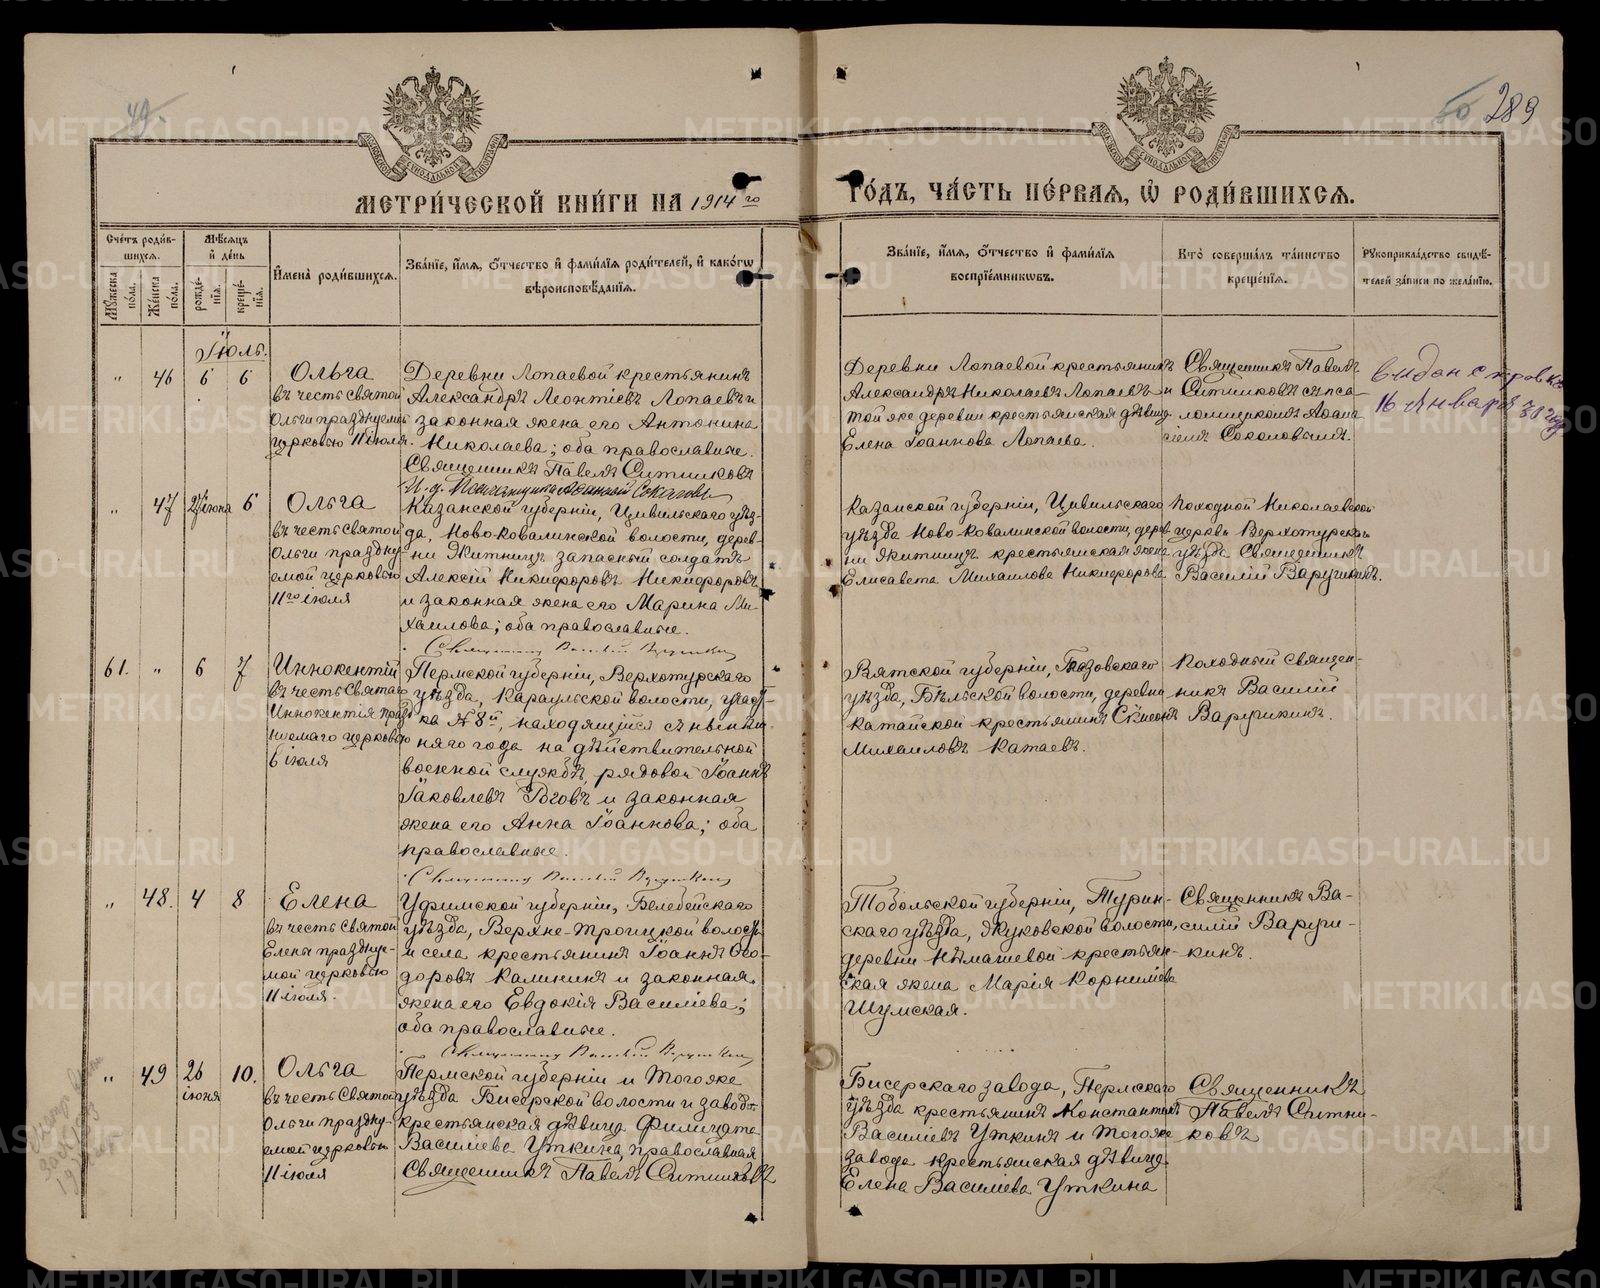 49.
50 289
МЕТРИ́ЧЕСКОЙ КНИ́ГИ НА 1914го
ГО́ДЪ, ЧА́СТЬ ПЕ́РВАЯ, Ѡ РОДИ́ВШИХСЯ.
Сче́тъ роди́в-
шихся.
Му́жеска по́ла.
Же́нска по́ла.
Мѣ́сяцъ
и҆ де́нь
рожде́-
нїя.
креще́-
нїя.
И҆мена̀ роди́вшихся.
Зва́нїе, и҆́мя, ѻ҆́тчество и҆ фамѝлїя роди́телей, и҆ како́гѡ
вѣроисповѣ́данїя.
Зва́нїе, и҆́мя, ѻ҆́тчество и҆ фамѝлїя
воспрїе́мникѡвъ.
Кто̀ соверша́лъ та́инство
креще́нїя.
Рꙋкоприкла́дство свидѣ́-
телей за́писи по жела́нїю.
Іюль.
" 46 6 6
Ольга
въ честь святой
Ольги празднуемой
церковью 11 июля.
Деревни Лопаевой крестьянинъ
Александръ Леонтіевъ Лопаевъ и
законная жена его Антонина
Николаева; оба православные.
Священникъ Павелъ Ситниковъ
И. д. Псаломщика Афанасій Соколовъ
Деревни Лопаевой крестьянинъ
Александръ Николаевъ Лопаевъ и
той же деревни крестьянская дѣвица
Елена Іоаннова Лопаева.
Священникъ Павелъ
Ситниковъ съ пса-
ломщикомъ Афана-
сіемъ Соколовымъ.
16 Января
" 47 27 іюня 6
Ольга
въ честь святой
Ольги праздну-
емой церковью
11го іюля
Казанской губерніи, Цивильскаго уѣз-
да, Ново-Ковалинской волости, дерев-
ни Житницъ запасный солдатъ
Алексій Никифоровъ Никифоровъ
и законная жена его Марина Ми-
хаилова; оба православные.
Священникъ Василій Варушкинъ
Казанской губерніи, Цивильскаго
уѣзда Ново-Ковалинской волости, дерев
ни Житницъ крестьянская жена
Елисавета Михаилова Никифорова
Походной Николаевской
церкви Верхотурскаго
уѣзда Священникъ
Василій Варушкинъ.
61. " 6 7
Иннокентій
въ честь Святаго
Иннокентія празд
нуемаго церковью
6 іюля
Пермской губерніи, Верхотурскаго
уѣзда, Караульской волости, участ-
ка № 8й, находящійся съ нынѣш-
няго года на дѣйствительной
военной службѣ, рядовой Іоаннъ
Іаковлевъ Роговъ и законная
жена его Анна Іоаннова; оба
православные.
Священникъ Василій Варушкинъ
Вятской губерніи, Глазовскаго
уѣзда, Бѣльской волости, деревни
Катайской крестьянинъ Симеонъ
Михаиловъ Катаевъ.
Походный священ-
никъ Василій
Варушкинъ.
" 48. 4 8
Елена
въ честь Святой
Елены праздну-
емой церковью
11 іюля.
Уфимской губерніи, Белебейскаго
уѣзда, Верхне-Троицкой волости
и села крестьянинъ Іоаннъ Ѳео-
доровъ Калининъ и законная
жена его Евдокія Василіева;
оба православные.
Священникъ Василій Варушкинъ
Тобольской губерніи, Турин-
скаго уѣзда, Жуковской волости,
деревни крестьян-
ская жена Марія Корниліева
Шумская.
Священникъ Ва-
силій Варуш-
кинъ.
" 49 26 іюня 10.
Ольга
въ честь Святой
Ольги праздну-
емой церковью
11 іюля
Пермской губерніи и тогоже
уѣзда Бисерской волости и завода
крестьянская дѣвица Филицата
Василіева Уткина, православная
Священникъ Павелъ Ситниковъ
Бисерскаго завода, Пермскаго
уѣзда крестьянинъ Константинъ
Василіевъ Уткинъ и тогоже
завода крестьянская дѣвица
Елена Василіева Уткина
Священникъ
Павелъ Ситни-
ковъ
METRIKI.GASO-URAL.RU